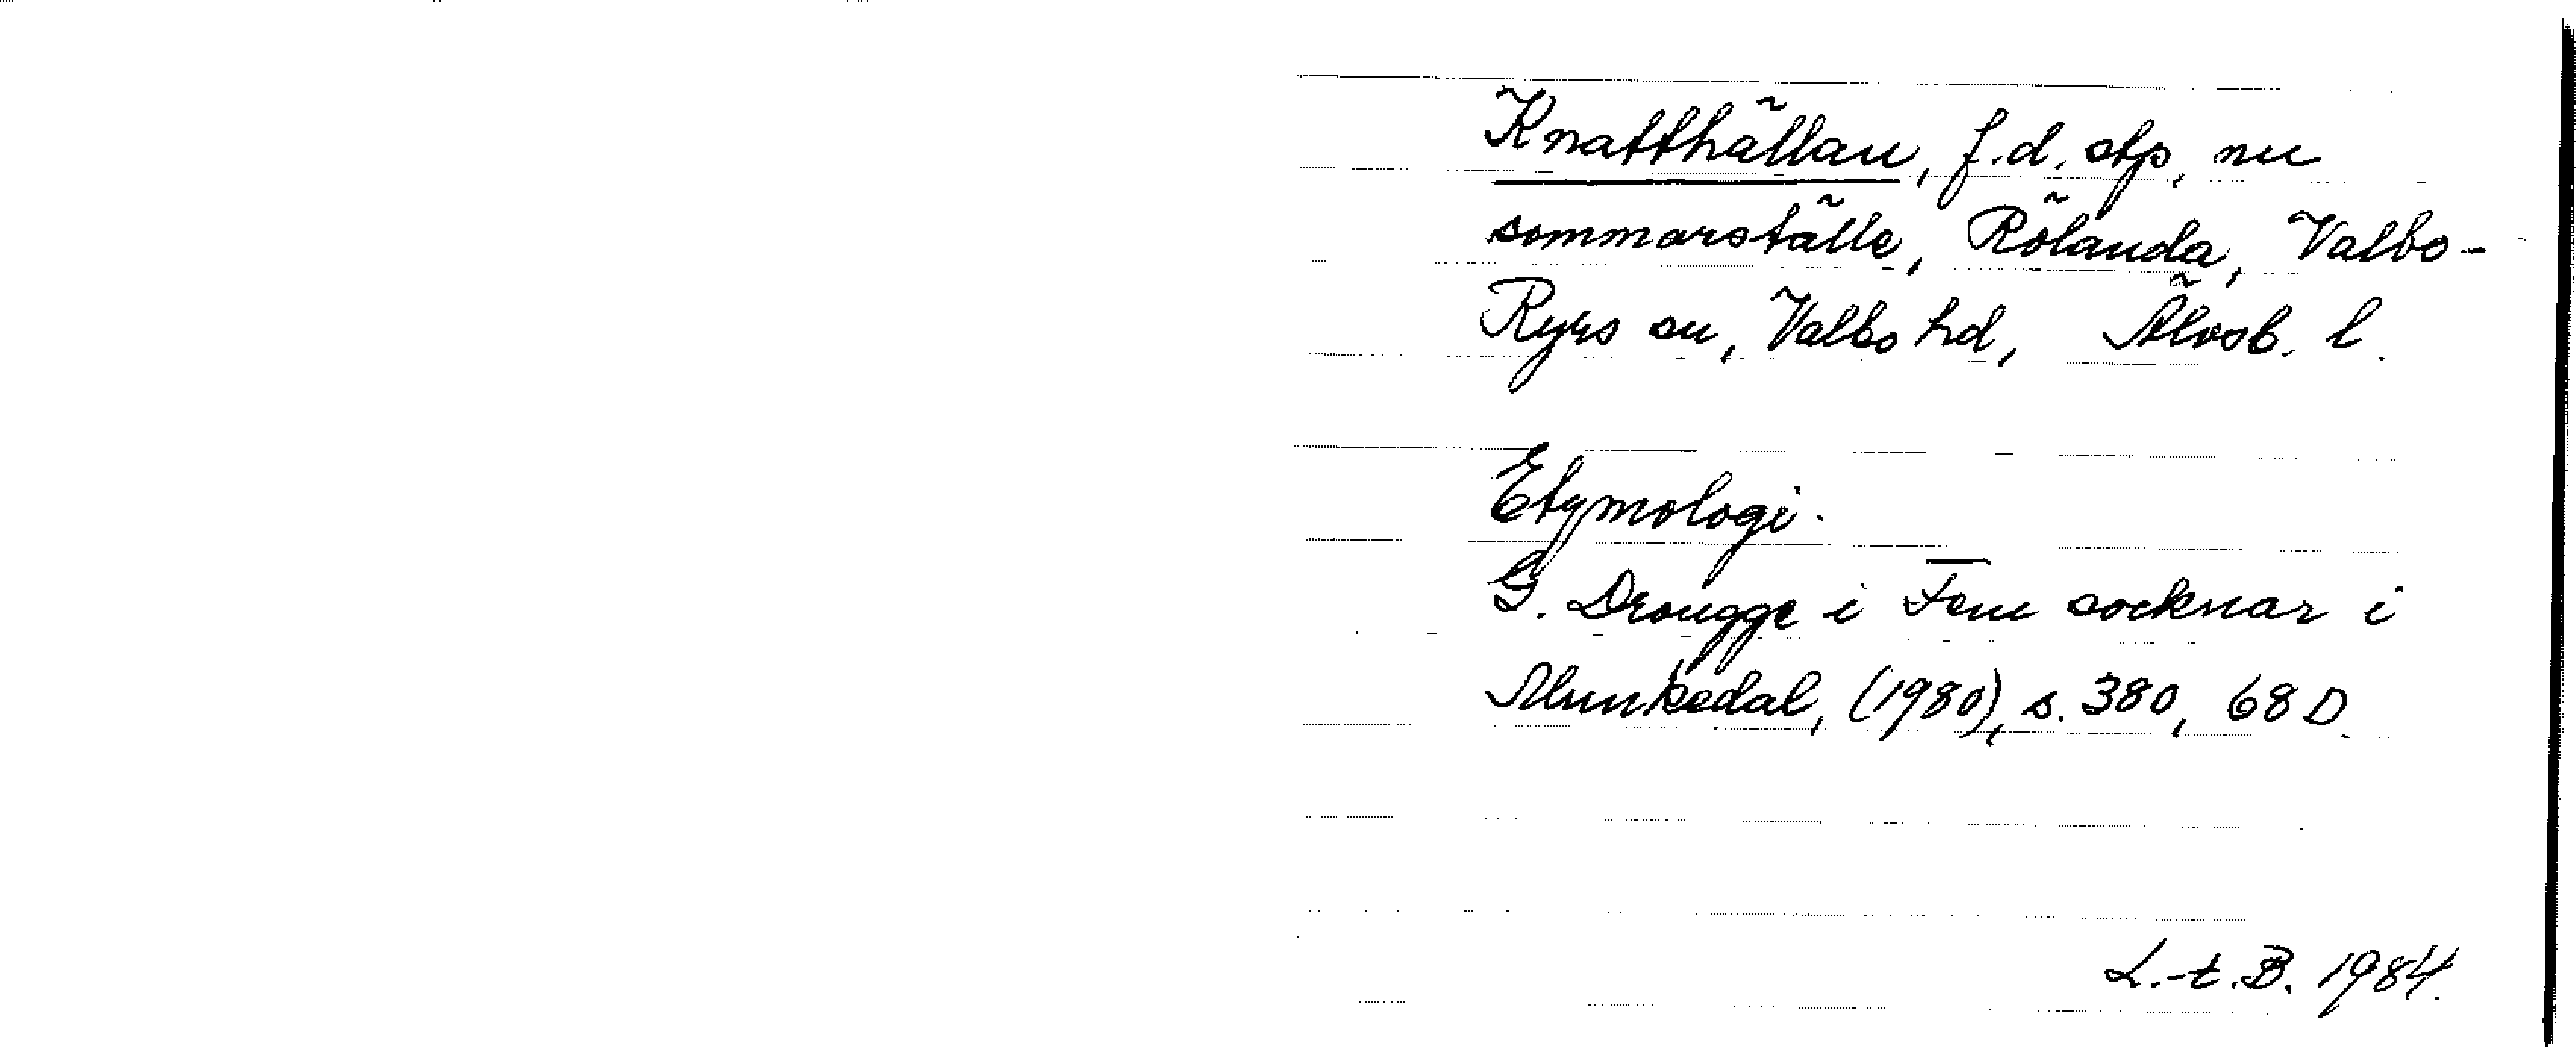 Knatthällan, f.d. stp, nu
sommarställe, Rölanda, Valbo-
Ryrs sn, Valbo hd, Älvsb. l.
Etymologi.
G. Drougge i Fem socknar i
Munkedal, (1980), s. 380, 68 D.
L.-t. B. 1984.